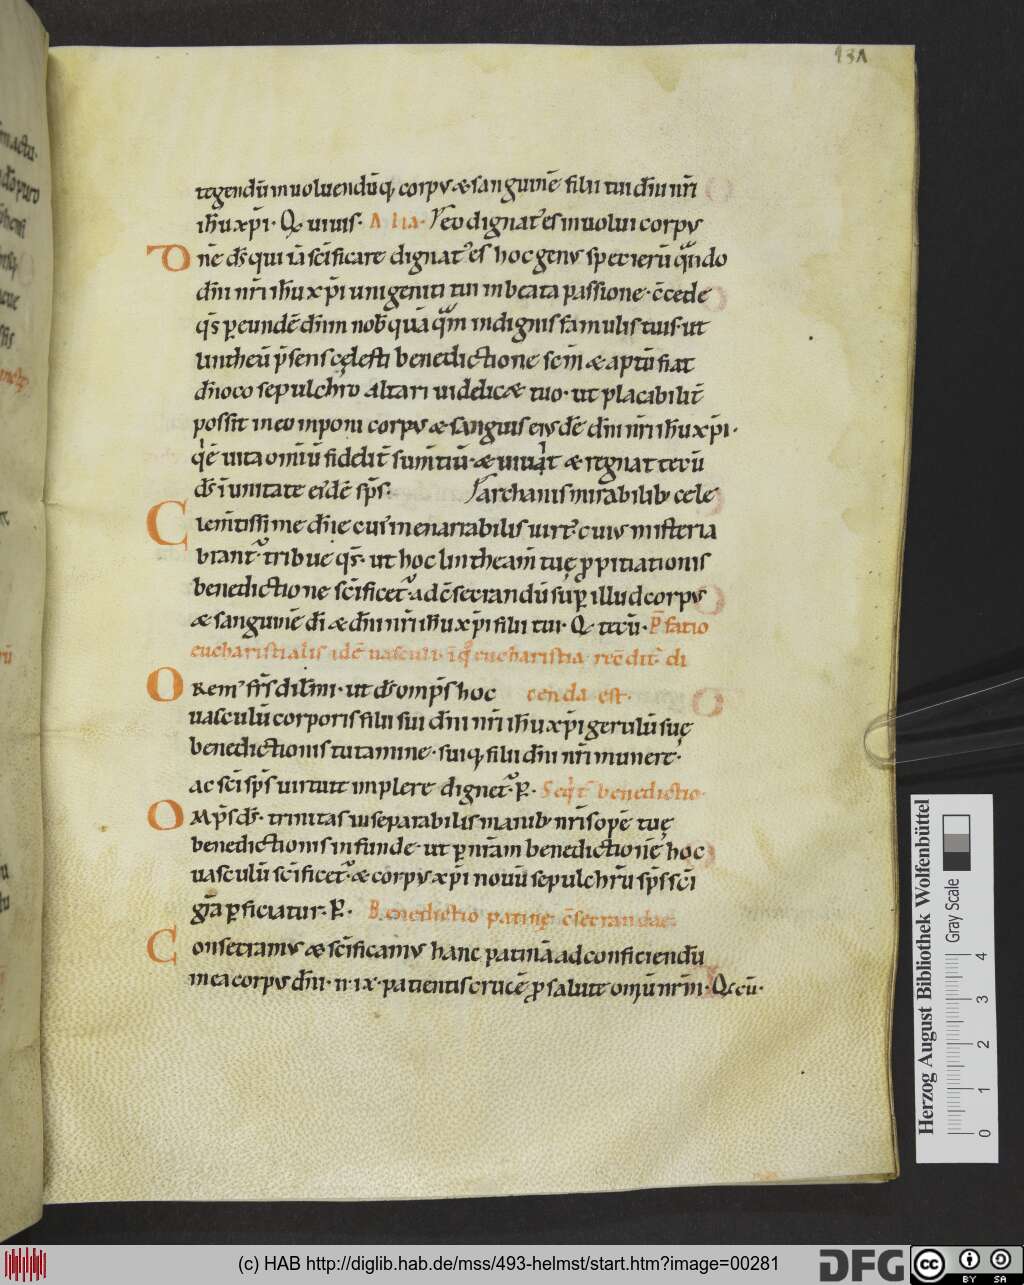 131
tegendū inuoluendūq; corpꝰ & sanguinē filii tui dn̄i nr̄i
ih̄u xp̄i. Q uiuis. Alia. eo dignatꝰ es inuolui corpꝰ
Dn̄e ds̄ qui iā sc̄ificare dignatꝰ es hoc genꝰ specierū quādo
dn̄i nr̄i ih̄u xp̄i unigeniti tui in beata passione. c̄cede
qs̄ p eundē dn̄m nob quā quā indignis famulis tuis. ut
lintheū p̄sens cęlesti benedictione sc̄m & aptū fiat
dn̄oco sepulchro altari uidelic& tuo. ut placabilit̄
possit in eo inponi corpꝰ & sanguis eiꝰdē dn̄i nr̄i ih̄u xp̄i.
uita om̄iū fidelit̄ & uiuit & regnat tecū
ds̄ ī unitate eiꝰdē sp̄s. archanis mirabilibꝰ cele
Clem̄tissime dn̄e cuiꝰ inenarrabilis uirtꝰ. cuiꝰ misteria
brant. tribue qs̄. ut hoc lintheam̄ tuę ppitiationis
benedictione sc̄ificet. ad c̄secrandū sup illud corpꝰ
& sanguinē di & dn̄i nr̄i ih̄u xp̄i filii tui. Q tecū. P̄fatio
eucharistialis idē uasculi. ī q eucharistia recōdit di
Oremꝰ frs̄ dilm̄i. ut ds̄ omp̄s hoc cenda est.
uasculū corporis filii sui dn̄i nr̄i ih̄u xp̄i gerulū suę
benedictionis tutamine. suiq; filii dn̄i nr̄i munere.
ac sc̄i sp̄s uirtute implere dignet. P. Seqt benedictio.
Omp̄s ds̄. trinitas inseparabilis manibꝰ nr̄is opē tuę
benedictionis infunde. ut p nr̄am benedictionē hoc
uasculū sc̄ificet. & corpꝰ xp̄i nouū sepulchrū sp̄s sc̄i
gr̄a pficiatur. P. Benedictio patinę c̄secrandae.
Consecramꝰ & sc̄ificamꝰ hanc patinā ad conficiendū
in ea corpꝰ dn̄i. n. i x. patientis crucē p salute om̄iū nr̄m. Q cū.
Herzog August Bibliothek Wolfenbüttel
Gray Scale
0 1 2 3 4
(c) HAB http://diglib.hab.de/mss/493-helmst/start.htm?image=00281
DFG
cc BY SA